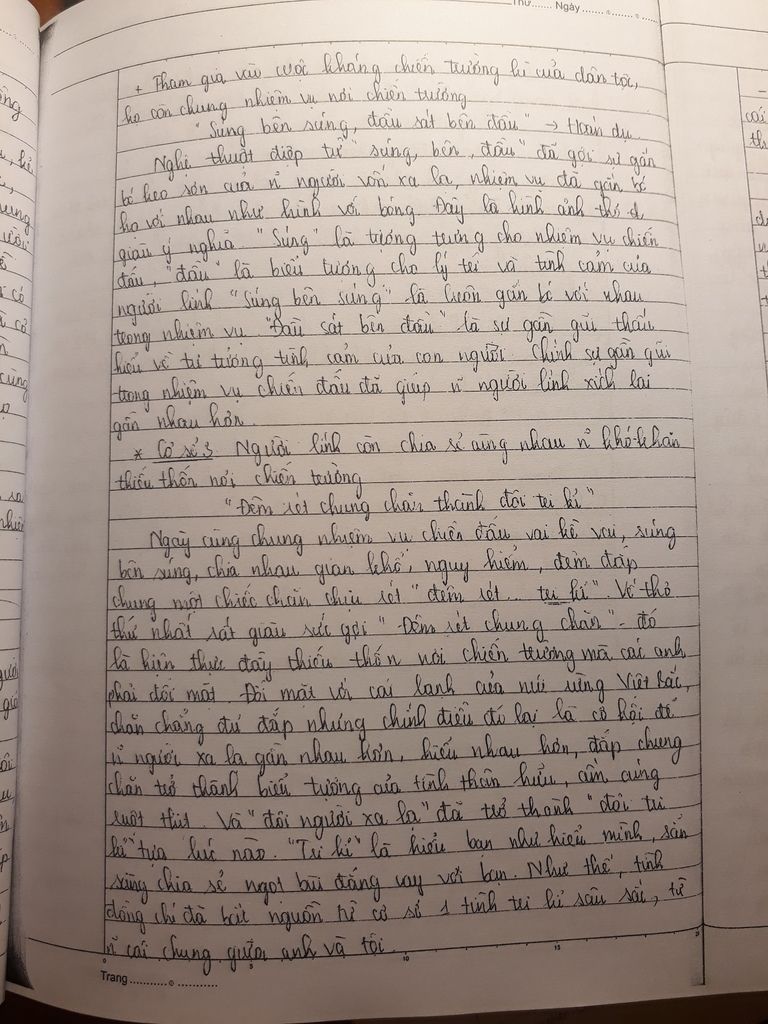 Thứ....... Ngày
+ Tham gia vào cuộc kháng chiến trường kì của dân tộc,
họ còn chung nhiệm vụ nơi chiến trường
"Súng bên súng, đầu sát bên đầu" → Hoán dụ
Nghệ thuật điệp từ "súng, bên, đầu" đã gợi sự gắn
bó keo sơn của n~ người vốn xa lạ, nhiệm vụ đã gắn bó
họ với nhau như hình với bóng. Đây là hình ảnh thơ
giàu ý nghĩa. "Súng" là tượng trưng cho nhiệm vụ chiến
đấu, "đầu" là biểu tượng cho lý trí và tình cảm của
người lính "Súng bên súng" là luôn gắn bó với nhau
trong nhiệm vụ "Đầu sát bên đầu" là sự gần gũi thấu
hiểu về tư tưởng tình cảm của con người. Chính sự gần gũi
trong nhiệm vụ chiến đấu đã giúp n~ người lính xích lại
gần nhau hơn.
* Cơ sở 3 Người lính còn chia sẻ cùng nhau n~ khó khăn
thiếu thốn nơi chiến trường
"Đêm rét chung chăn thành đôi tri kỉ"
Ngày cùng chung nhiệm vụ chiến đấu vai kề vai, súng
bên súng, chia nhau gian khổ, nguy hiểm, đêm đắp
chung một chiếc chăn chịu rét "đêm rét... tri kỉ". Vế thơ
thứ nhất rất giàu sức gợi "Đêm rét chung chăn" - đó
là hiện thực đầy thiếu thốn nơi chiến trường mà các anh
phải đối mặt. Đối mặt với cái lạnh của núi rừng Việt Bắc,
chăn chẳng đủ đắp nhưng chính điều đó lại là cơ hội để
n~ người xa lạ gần nhau hơn, hiểu nhau hơn, đắp chung
chăn trở thành biểu tượng của tình thân hữu, ấm cúng
ruột thịt. Và "đôi người xa lạ" đã trở thành "đôi tri
kỉ" tựa lúc nào. "Tri kỉ" là hiểu bạn như hiểu mình, sẵn
sàng chia sẻ ngọt bùi đắng cay với bạn. Như thế, tình
đồng chí đã bắt nguồn từ cơ sở 1 tình tri kỉ sâu sắc, từ
n~ cái chung giữa anh và tôi.
0 5 10 15
Trang